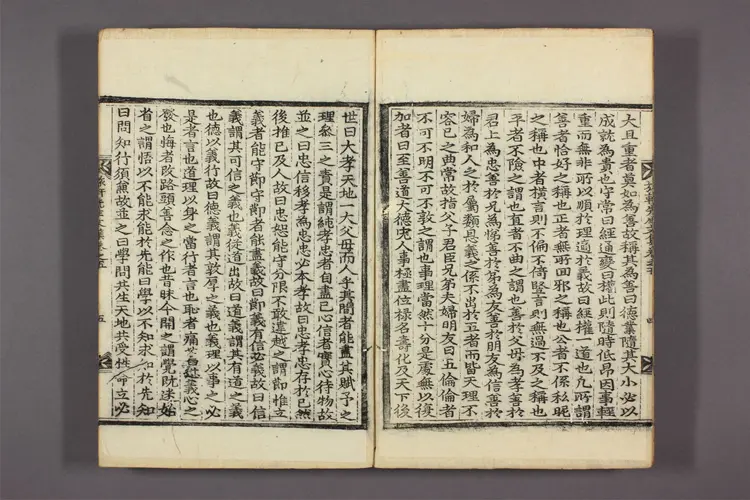 大且重者莫如為善故稱其為善曰德業隨其大小必以
成就為貴也守常曰經通變曰權此則隨時低昂因事輕
重而無非所以順於理適於義故曰經權一道也凡所謂
善者恰好之稱也正者無所回邪之稱也公者不係私昵
之稱也中者橫言則不偏不倚竪言則無過不及之稱也
平者不險之謂也直者不曲之謂也善於父母為孝善於
君上為忠善於兄為悌善於弟為友善於朋友為信善於
婦為和人之於屬類恩義之係不出於五者而皆天理不
容已之典常故指父子君臣兄弟夫婦朋友曰五倫倫者
不可不明不可不敦之謂也事理當然十分是處無以復
加者曰至善道大德宏人事極盡位祿名壽化及天下後
四
世曰大孝天地一大父母而人乎其間者能盡其賦予之
理叅三之責是謂純孝忠者自盡己心信者實心待物故
並之曰忠信移孝為忠忠必本孝故曰忠孝忠存於己然
後推己及人故曰忠恕能守分限不敢違越之謂節惟立
義者能守節守節者能盡義故曰節義有信必義故曰信
義謂其可信之義也義從道出故曰道義謂其有道之義
也德以義行故曰德義謂其敦厚之義也義理以事之必
是者言也道理以身之當行者言也恥者痛義心之
發也悔者改路頭善念之作也昔昧今開之謂覺旣迷始
省之謂悟以不能求能於先能曰學以不知求知於先知
曰問知行須兼故並之曰學問共生天地共受性命立必
五